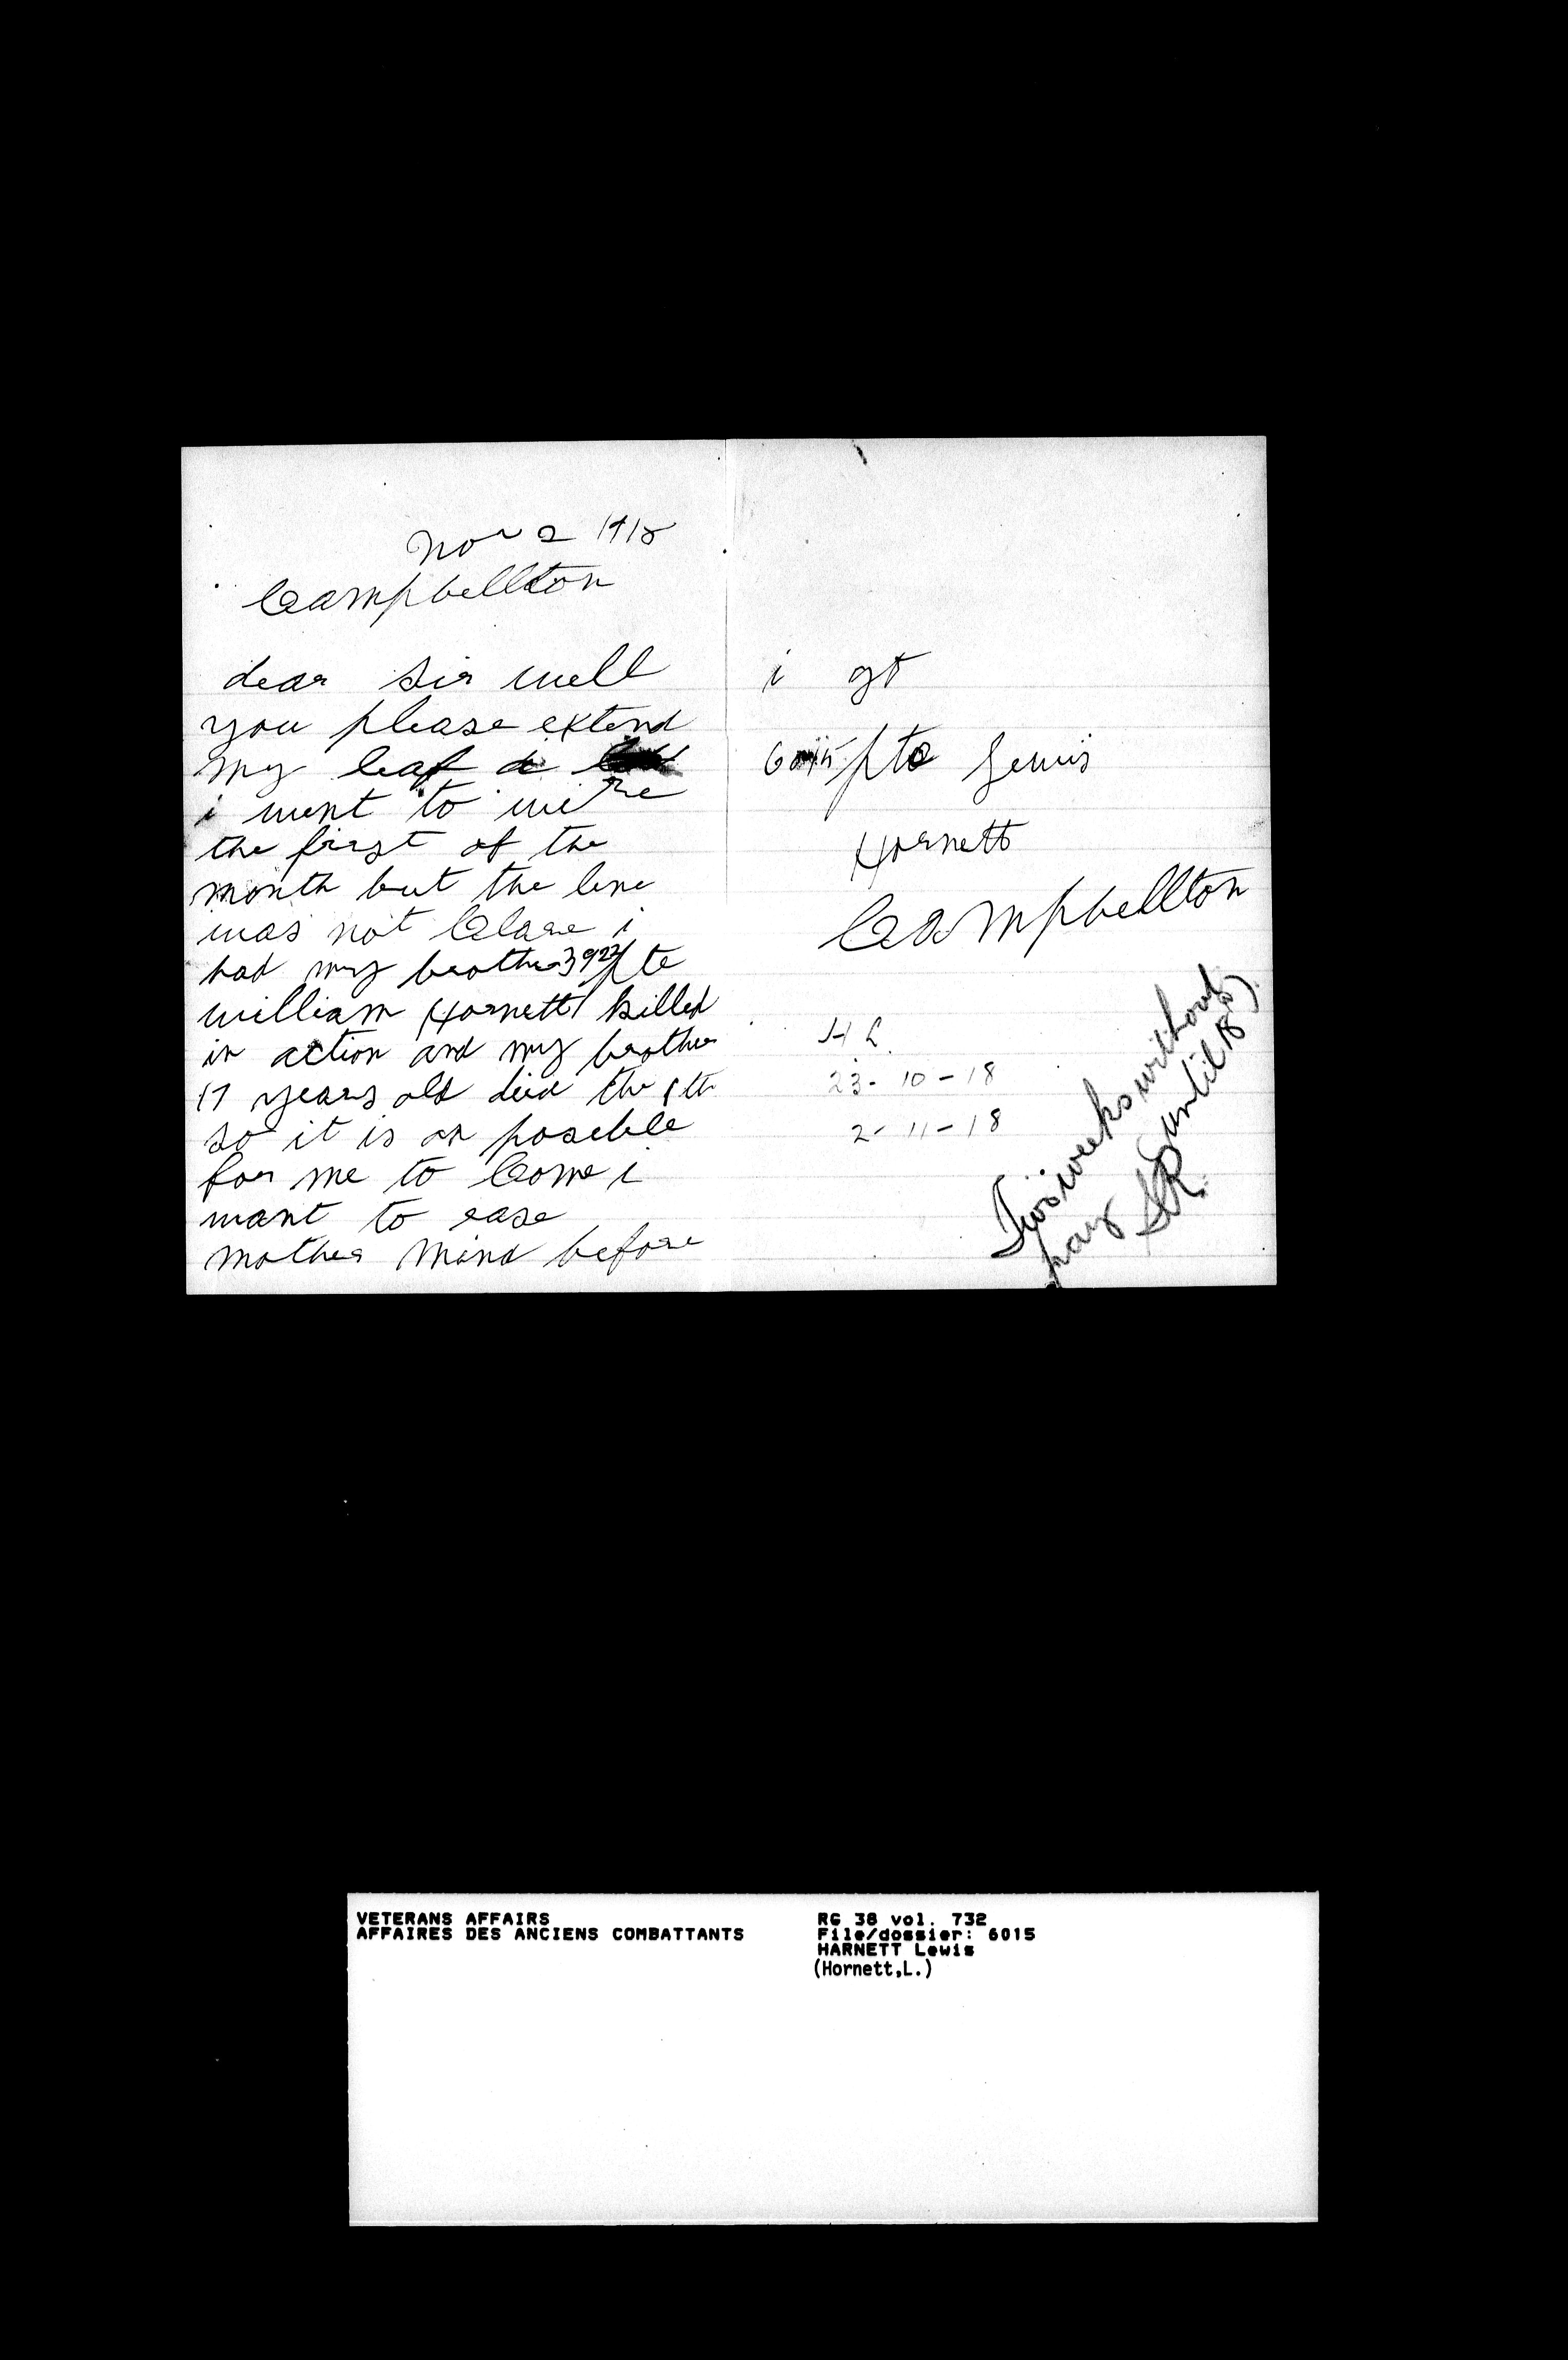 Nov 2 1918
Campbellton
dear Sir will
you please extend
my leaf
i went to wire
the first of the
month but the line
was not Clare i
had my brother 3927 pte
william Hornett killed
in action and my brother
17 years old died the 1th
so it is on poseble
for me to Come i
want to ease
mother mind before
i gt
6015 pte Lewis
Hornett
Campbellton
H L
23-10-18
2-11-18
Two weeks without
pay (until 18th)
VETERANS AFFAIRS
AFFAIRES DES ANCIENS COMBATTANTS
RG 38 vol. 732
File/dossier: 6015
HARNETT Lewis
(Hornett,L.)